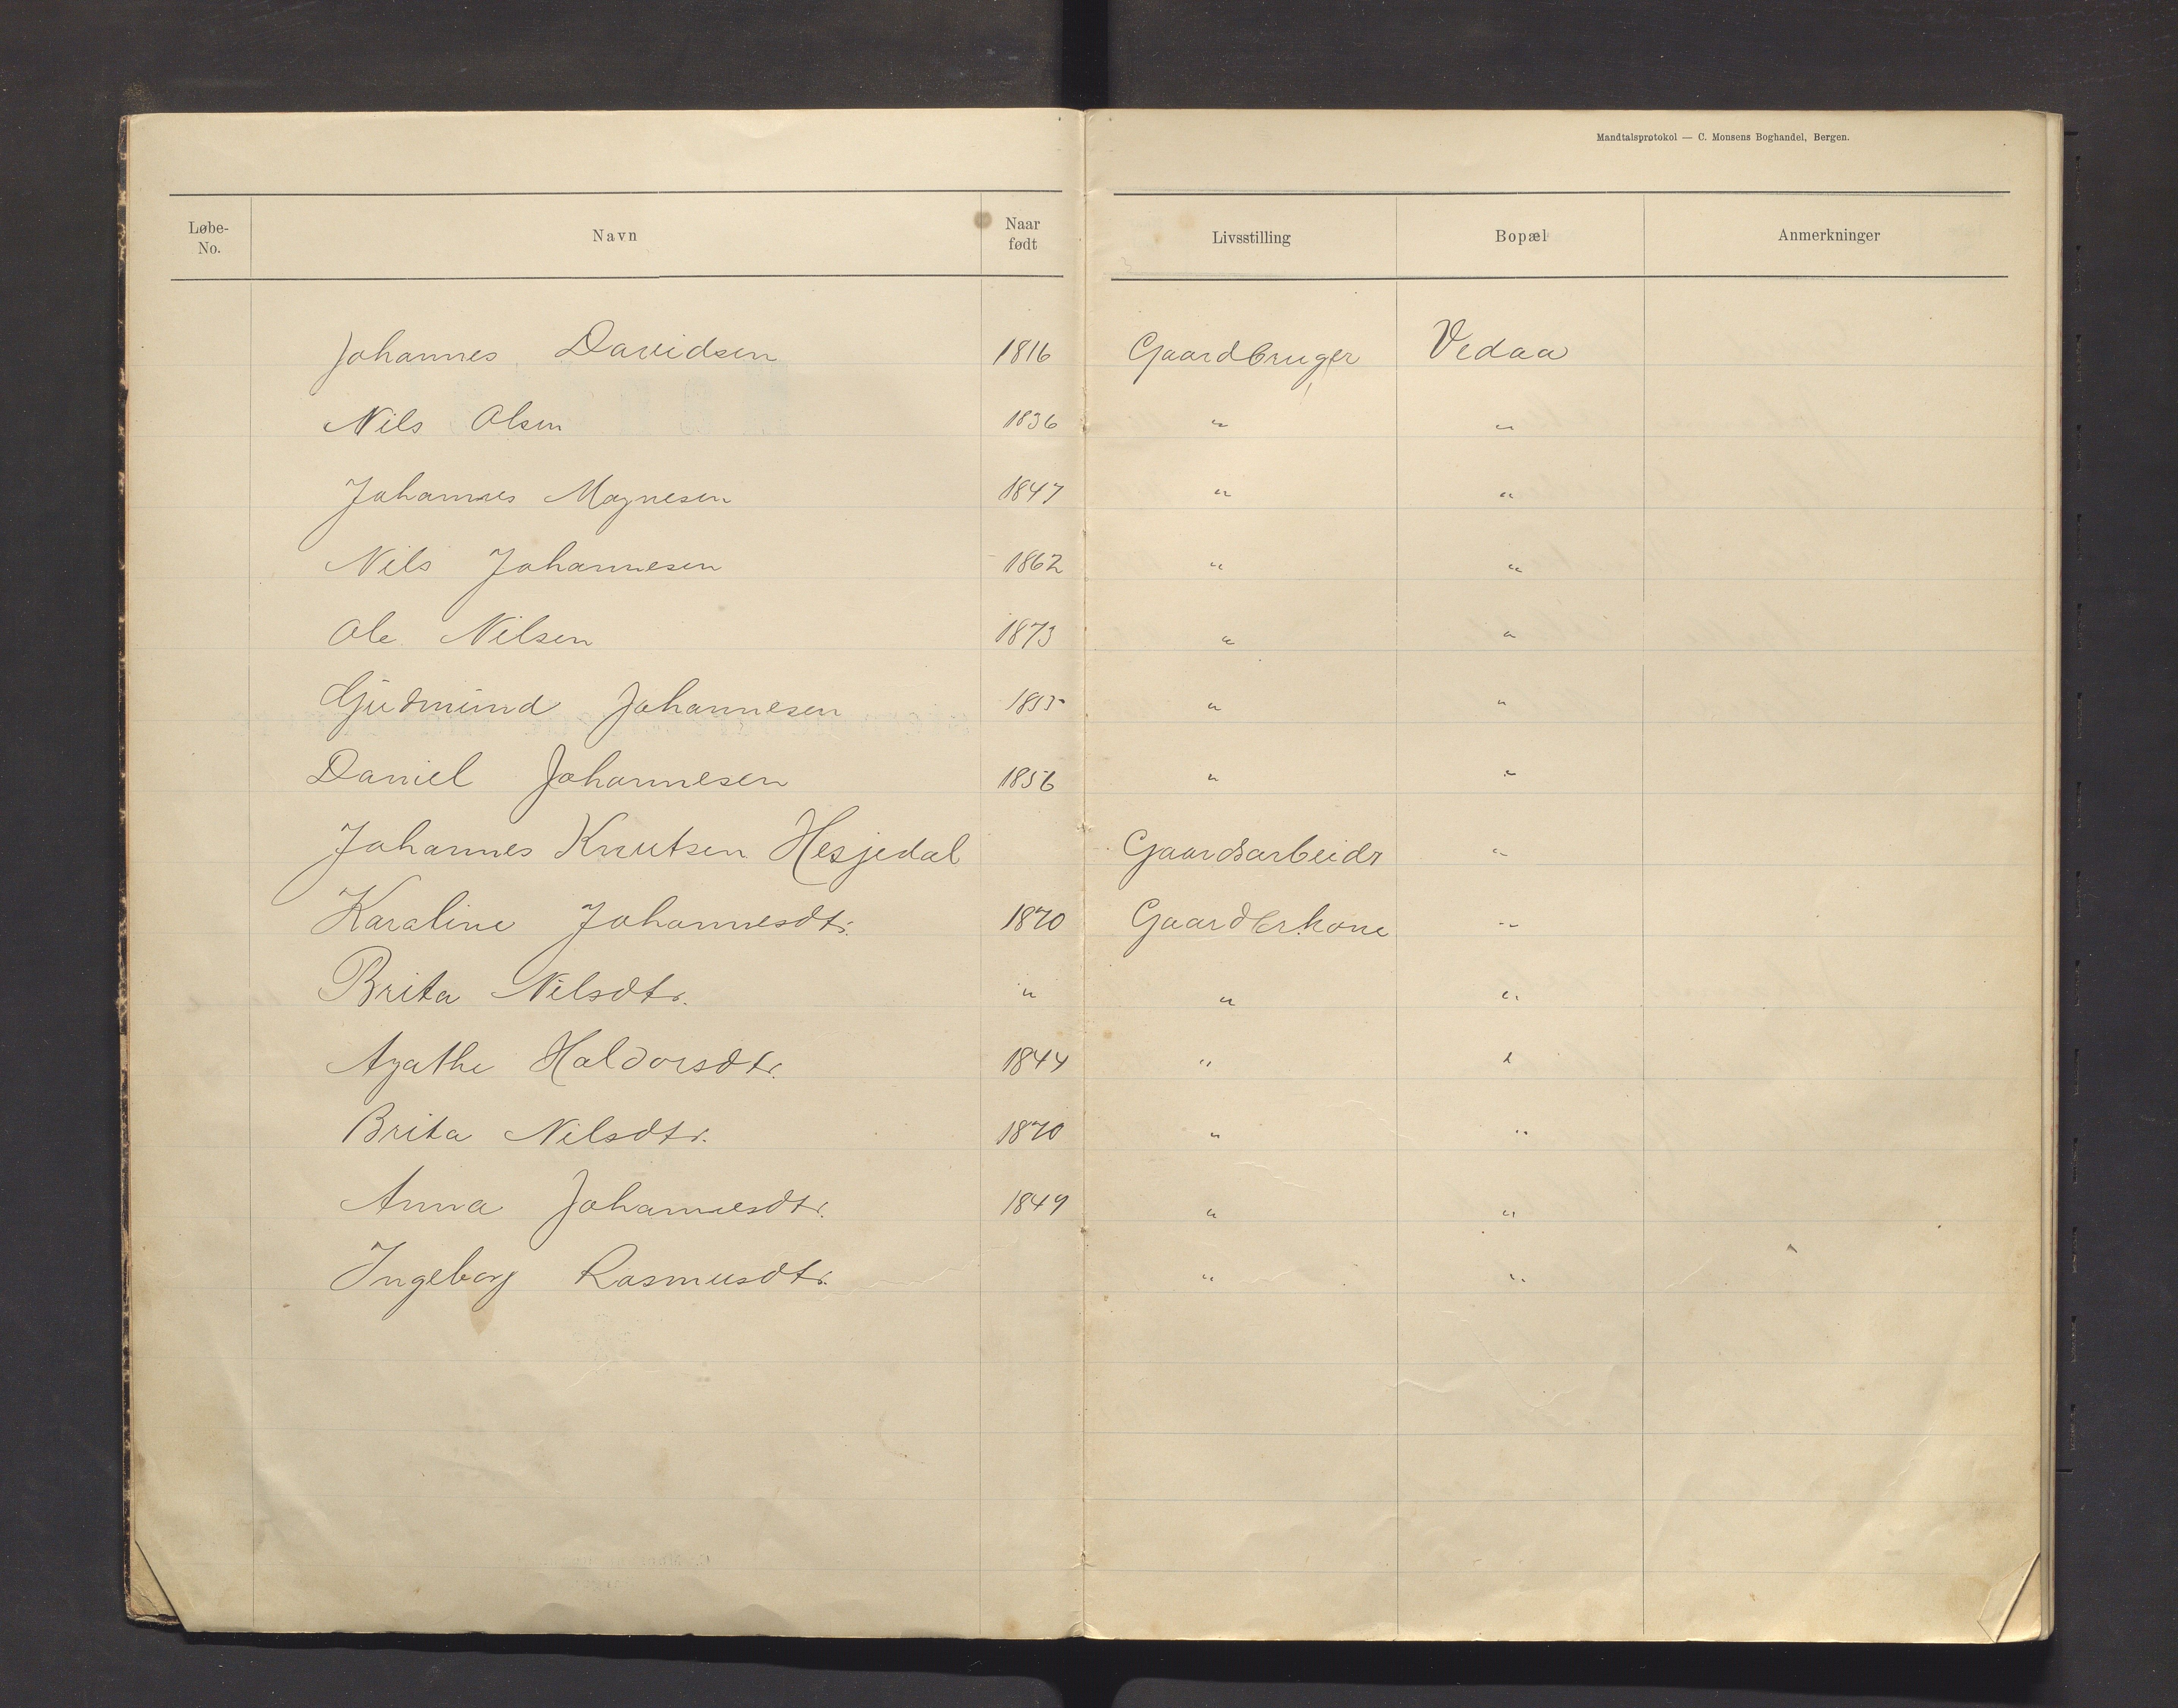 Mandtalsprotokol — C. Monsens Boghandel, Bergen.
Løbe-No. Navn Naar født Livsstilling Bopæl Anmerkninger
Johannes Davidsen 1816 Gaardbruger Vedaa
Nils Olsen 1836 " "
Johannes Magnesen 1847 " "
Nils Johannesen 1862 " "
Ole Nilsen 1873 " "
Gjudmund Johannesen " "
Daniel Johannesen 1856 " "
Johannes Knutsen Hesjedal Gaardsarbeidr "
Karaline Johannesdtr. 1870 Gaardbrkone "
Brita Nilsdtr. " " "
Agathe Haldorsdtr. 1844 " "
Brita Nilsdtr. 1870 " "
Anna Johannesdtr. 1849 " "
Ingeborg Rasmusdtr. " "